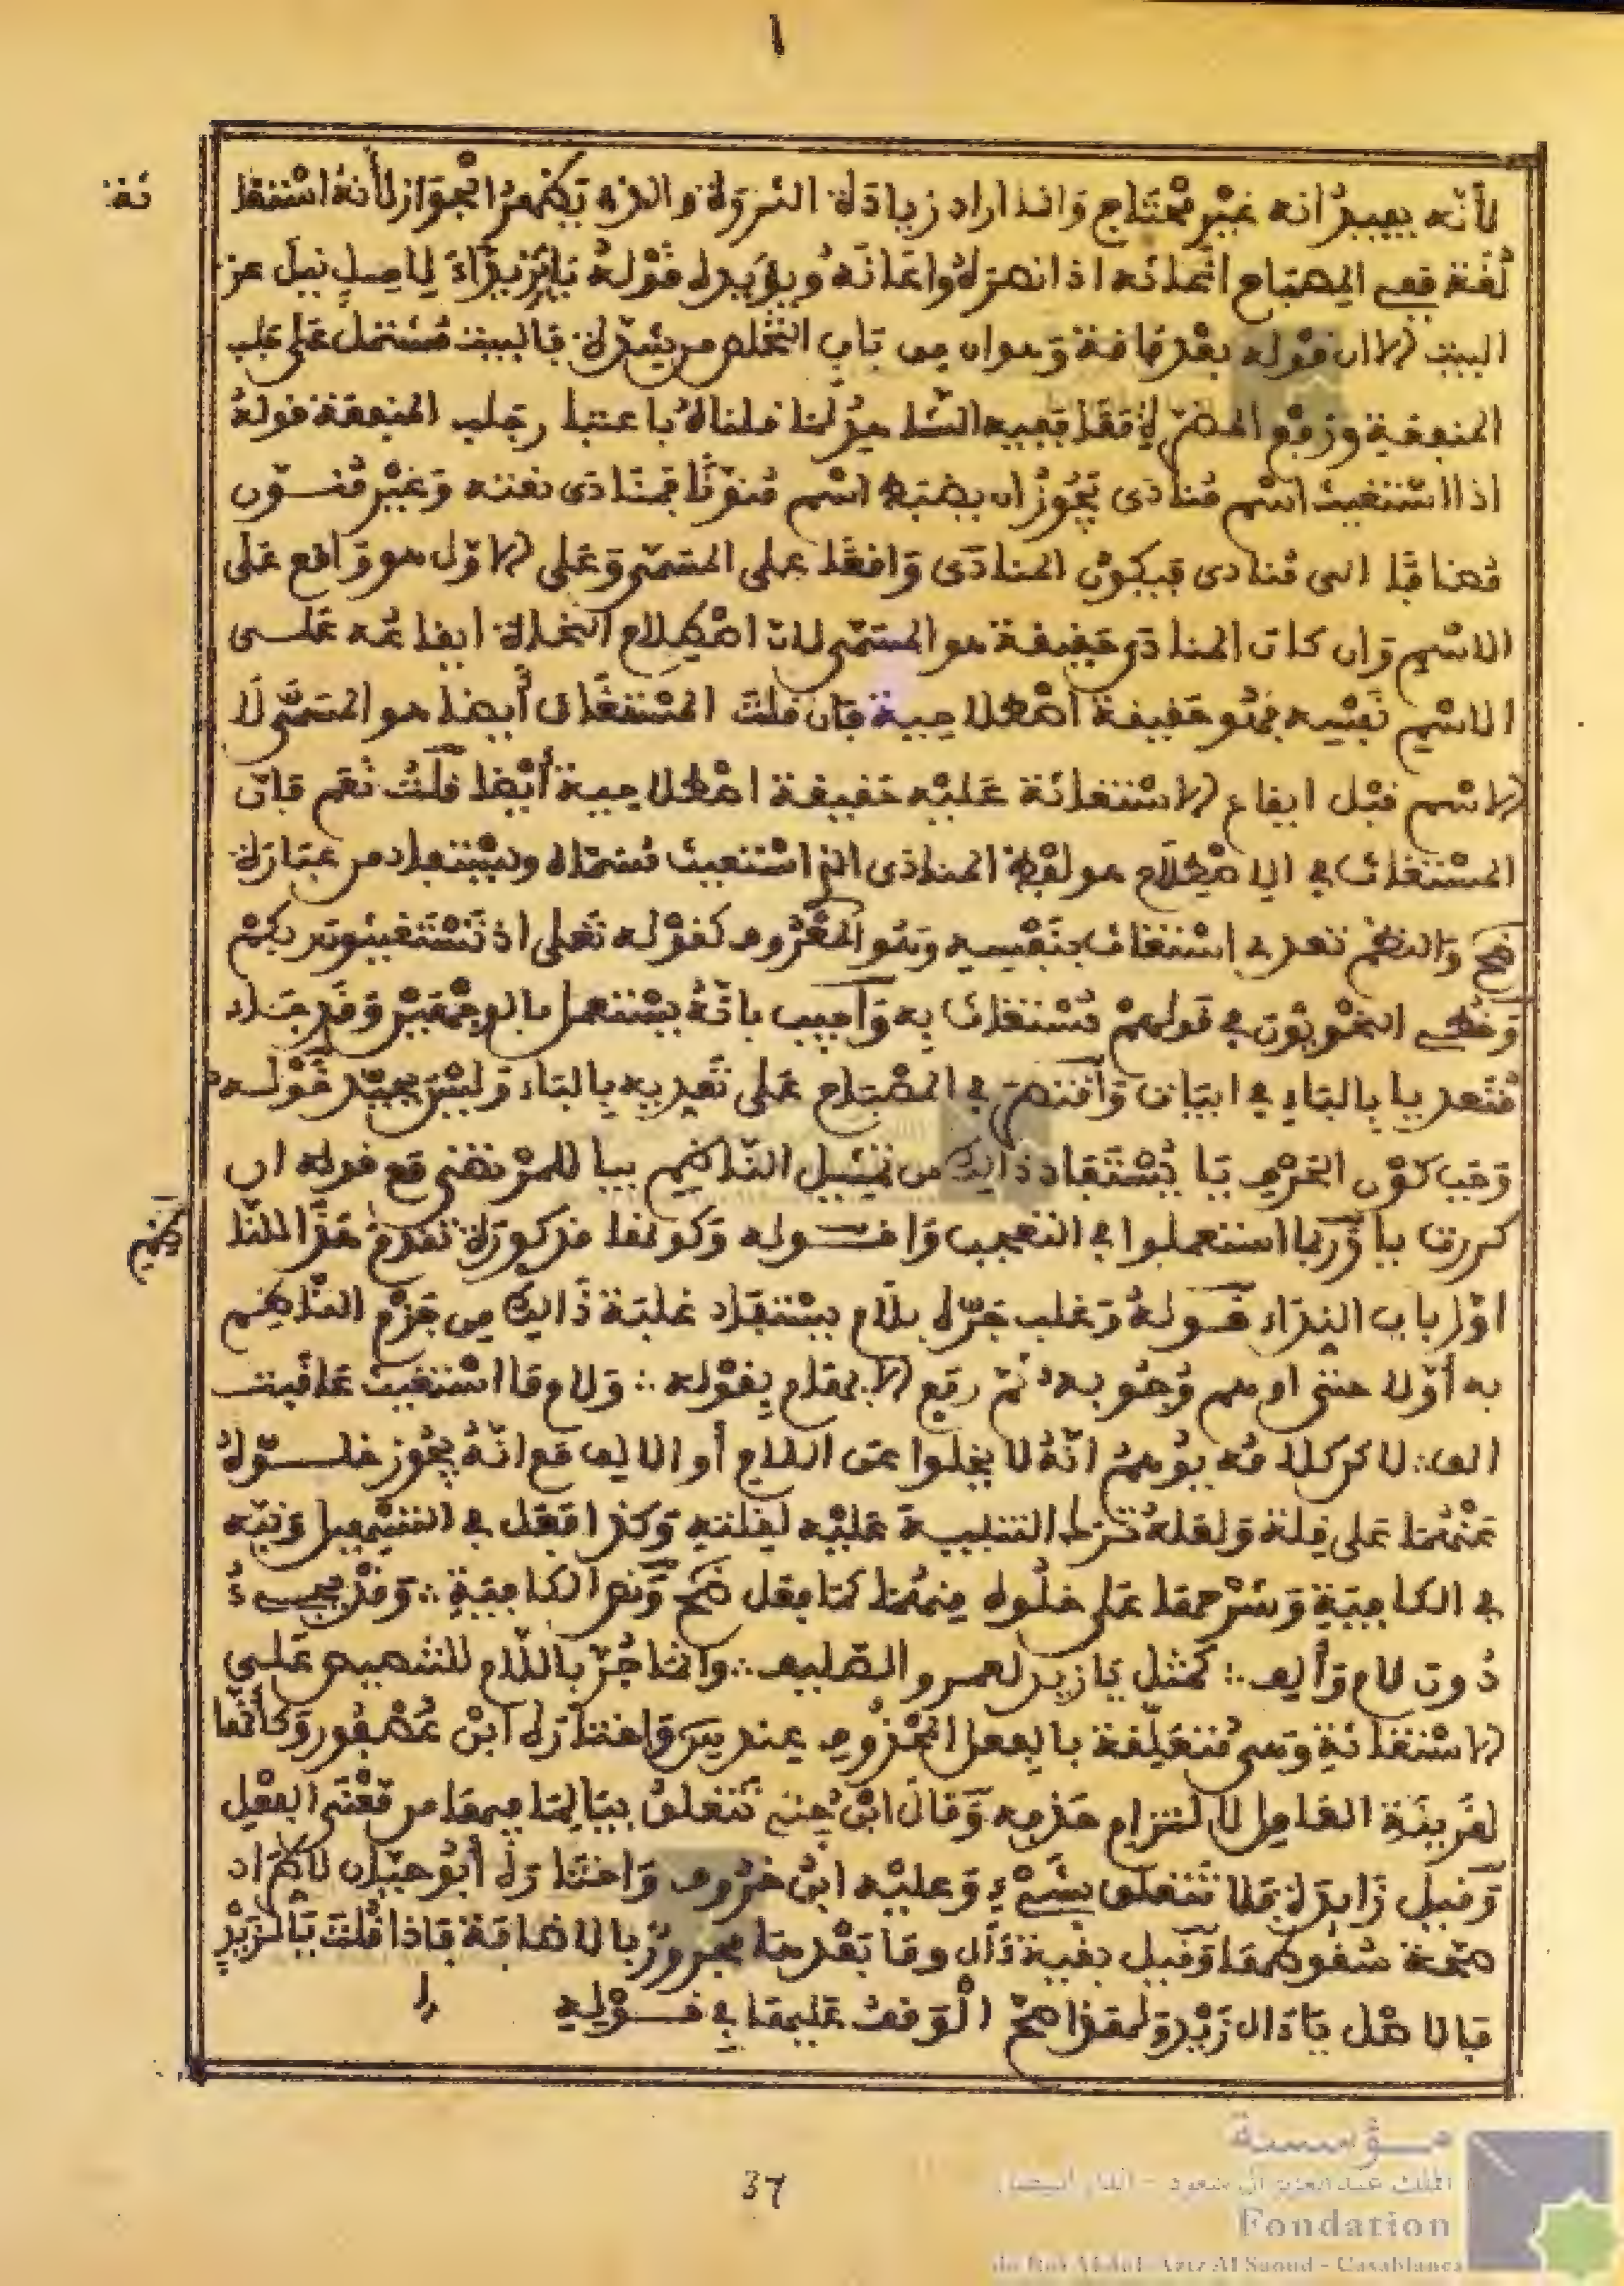 لأنه يعيد أنه غير محتاج وإنما أراد زيادة الثروة والذي يظهر الجواز لأنه استغا
ثة ففي المصباح أغاثه إذا نصره وأعانه ويؤيده قوله يا يزيدا لآمل نيل عز
البيت الا ان قوله بعد فاقة وهوان من باب التخلص من شدة فالبيت مشتمل على جلب
المنفعة ودفع المضرة فقط ففيه الشاهد لما قلناه باعتبار جلب المنفعة قوله
اذا استغيث اسم منادى يجوز ان يضبط اسم منونا فمنادى نعته وغير منون
مضافا الى منادى فيكون المنادى واقعا على المسمى وعلى الاول هو واقع على
الاسم وان كان المنادى حقيقة هو المسمى لان اصطلاح النحاة ايقاعه على
الاسم نفسه فهو حقيقة اصطلاحية فان قلت المستغاث أيضا هو المسمى لا
الاسم قبل ايقاع الاستغاثة عليه حقيقة اصطلاحية أيضا قلت نعم فان
المستغاث في الاصطلاح هو لفظ المنادى الذي استغيث مسماه ويستفاد من عبارة
ضح والنظم تعدي استغاث بنفسه وهو المعروف كقوله تعلى اذ تستغيثون ربكم
وخطئ النحويون في قولهم مستغاث به وأجيب بأنه يستعمل بالوجهين وقد جاء
متعديا بالباء في ابيات واقتصر في المصباح على تعديه بالباء وليس بجيد قوله
وجب كون الحرف يا يستفاد ذالك من تمثيل الناظم بيا للمرتضى مع قوله ان
كررت يا وربما استعملوا في التعجب وا قوله وكونها مذكورة تقدم هذا للنا
ظم
اول باب النداء قوله وغلب جره بلام يستفاد غلبة ذالك من جزم الناظم
به أولا حتى اوهم وجوبه ثم رفع الايهام بقوله ∴ ولام ما استغيث عاقبت
الف ∴ لاكن كلامه يوهم انه لا يخلوا عن اللام أو الالف مع انه يجوز خلوه
عنهما على قلة ولعله ترك التنبيه عليه لقلته وكذا فعل في التسهيل ونبه
في الكافية وشرحها على خلوه منهما كما فعل ضح ونص الكافية ∴ وقد يجيء
دون لام وألف ∴ كمثل يا زيد لعمرو الصليف ∴ وانما جر باللام للتنصيص على
الاستغاثة وهي متعلقة بالفعل المحذوف عند س واختاره ابن عصفور وكأنها
لقرينة العامل لالتزام حذفه وقال ابن جني تتعلق بيا لما فيها من معنى الفعل
وقيل زايدة فلا تتعلق بشيء وعليه ابن خروف واختاره أبو حيان لاطراد
صحة سقوطها وقيل بقية ءال وما بعدها مجرور بالاضافة فاذا قلت يا لزيد
فالاصل يا ءال زيد ولهذا صح الوقف عليها في قوله
37
مؤسسة
الملك عبد العزيز آل سعود - الدار البيضاء
Fondation
du Roi Abdul-Aziz Al Saoud - Casablanca